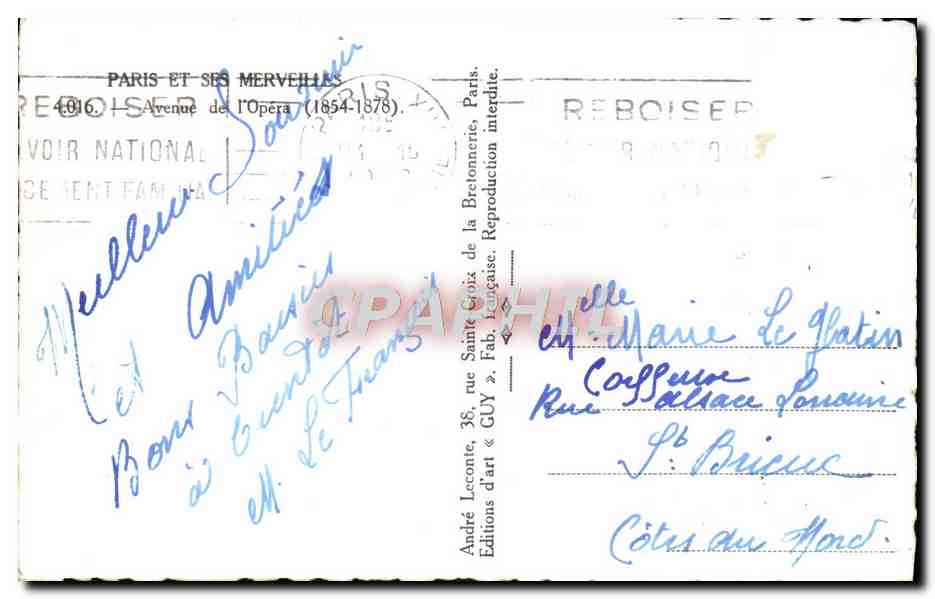 PARIS ET SES MERVEILLES
4.016. — Avenue de l'Opéra (1854-1878).
REBOISER
VOIR NATIONAL
PARIS XVII
REBOISER
Meilleur Souvenir
et Amitiés
Bons Baisers
à bientôt
M. Le
André Leconte, 38, rue Sainte-Croix de la Bretonnerie, Paris.
Editions d'art « GUY ». Fab. Française. Reproduction interdite.
CPAPHIL
Melle Marie Le
Coiffeuse
Rue Alsace Lorraine
St. Brieuc
Côtes du Nord.